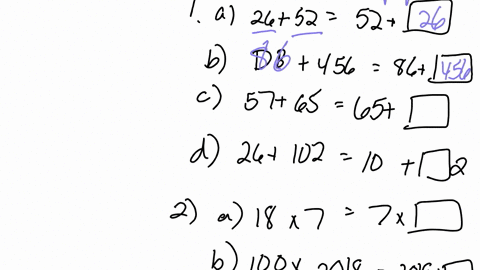 1. a) 26+52 = 52+ 26
b) 86 + 456 = 86+ 456
c) 57+65 = 65+
d) 26+ 102 = 10 + 2
2) a) 18 × 7 = 7 ×
b) 100 ×